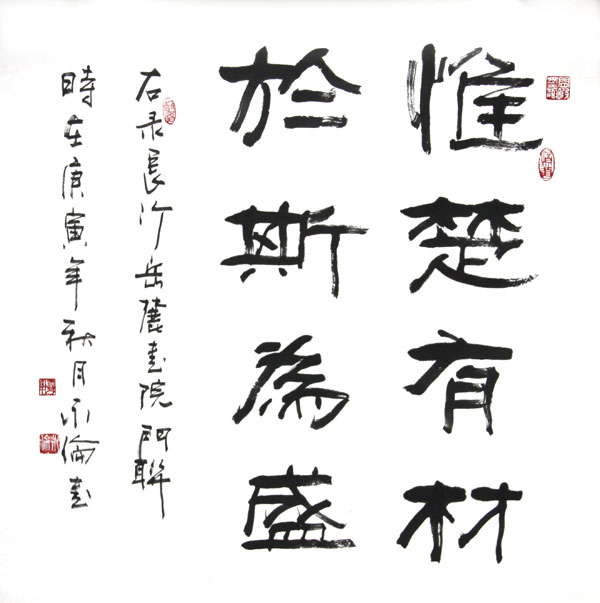 惟楚有材
於斯為盛
右录長沙岳麓书院門聯
時在庚寅年秋月承倫书